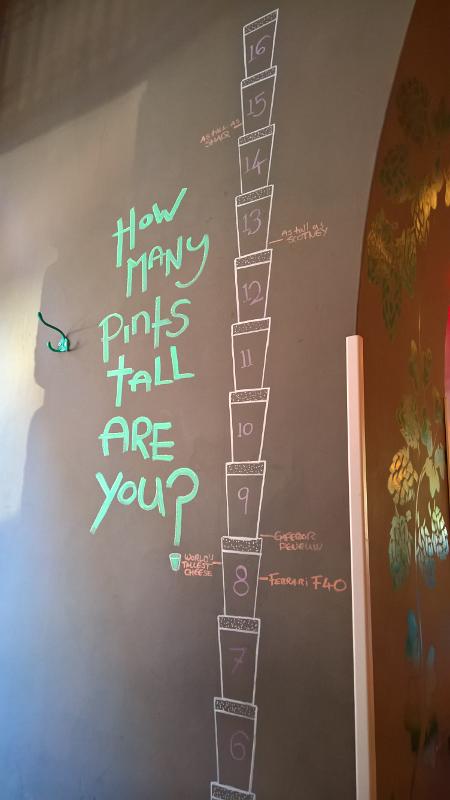 16
15
As tall as
SHAQ
14
13
As tall as
SCOTNEY
12
11
10
9
EMPEROR
PENGUIN
WORLD'S
TALLEST
CHEESE
8
FERRARI F40
7
6
HOW
MANY
PINTS
TALL
ARE
YOU?